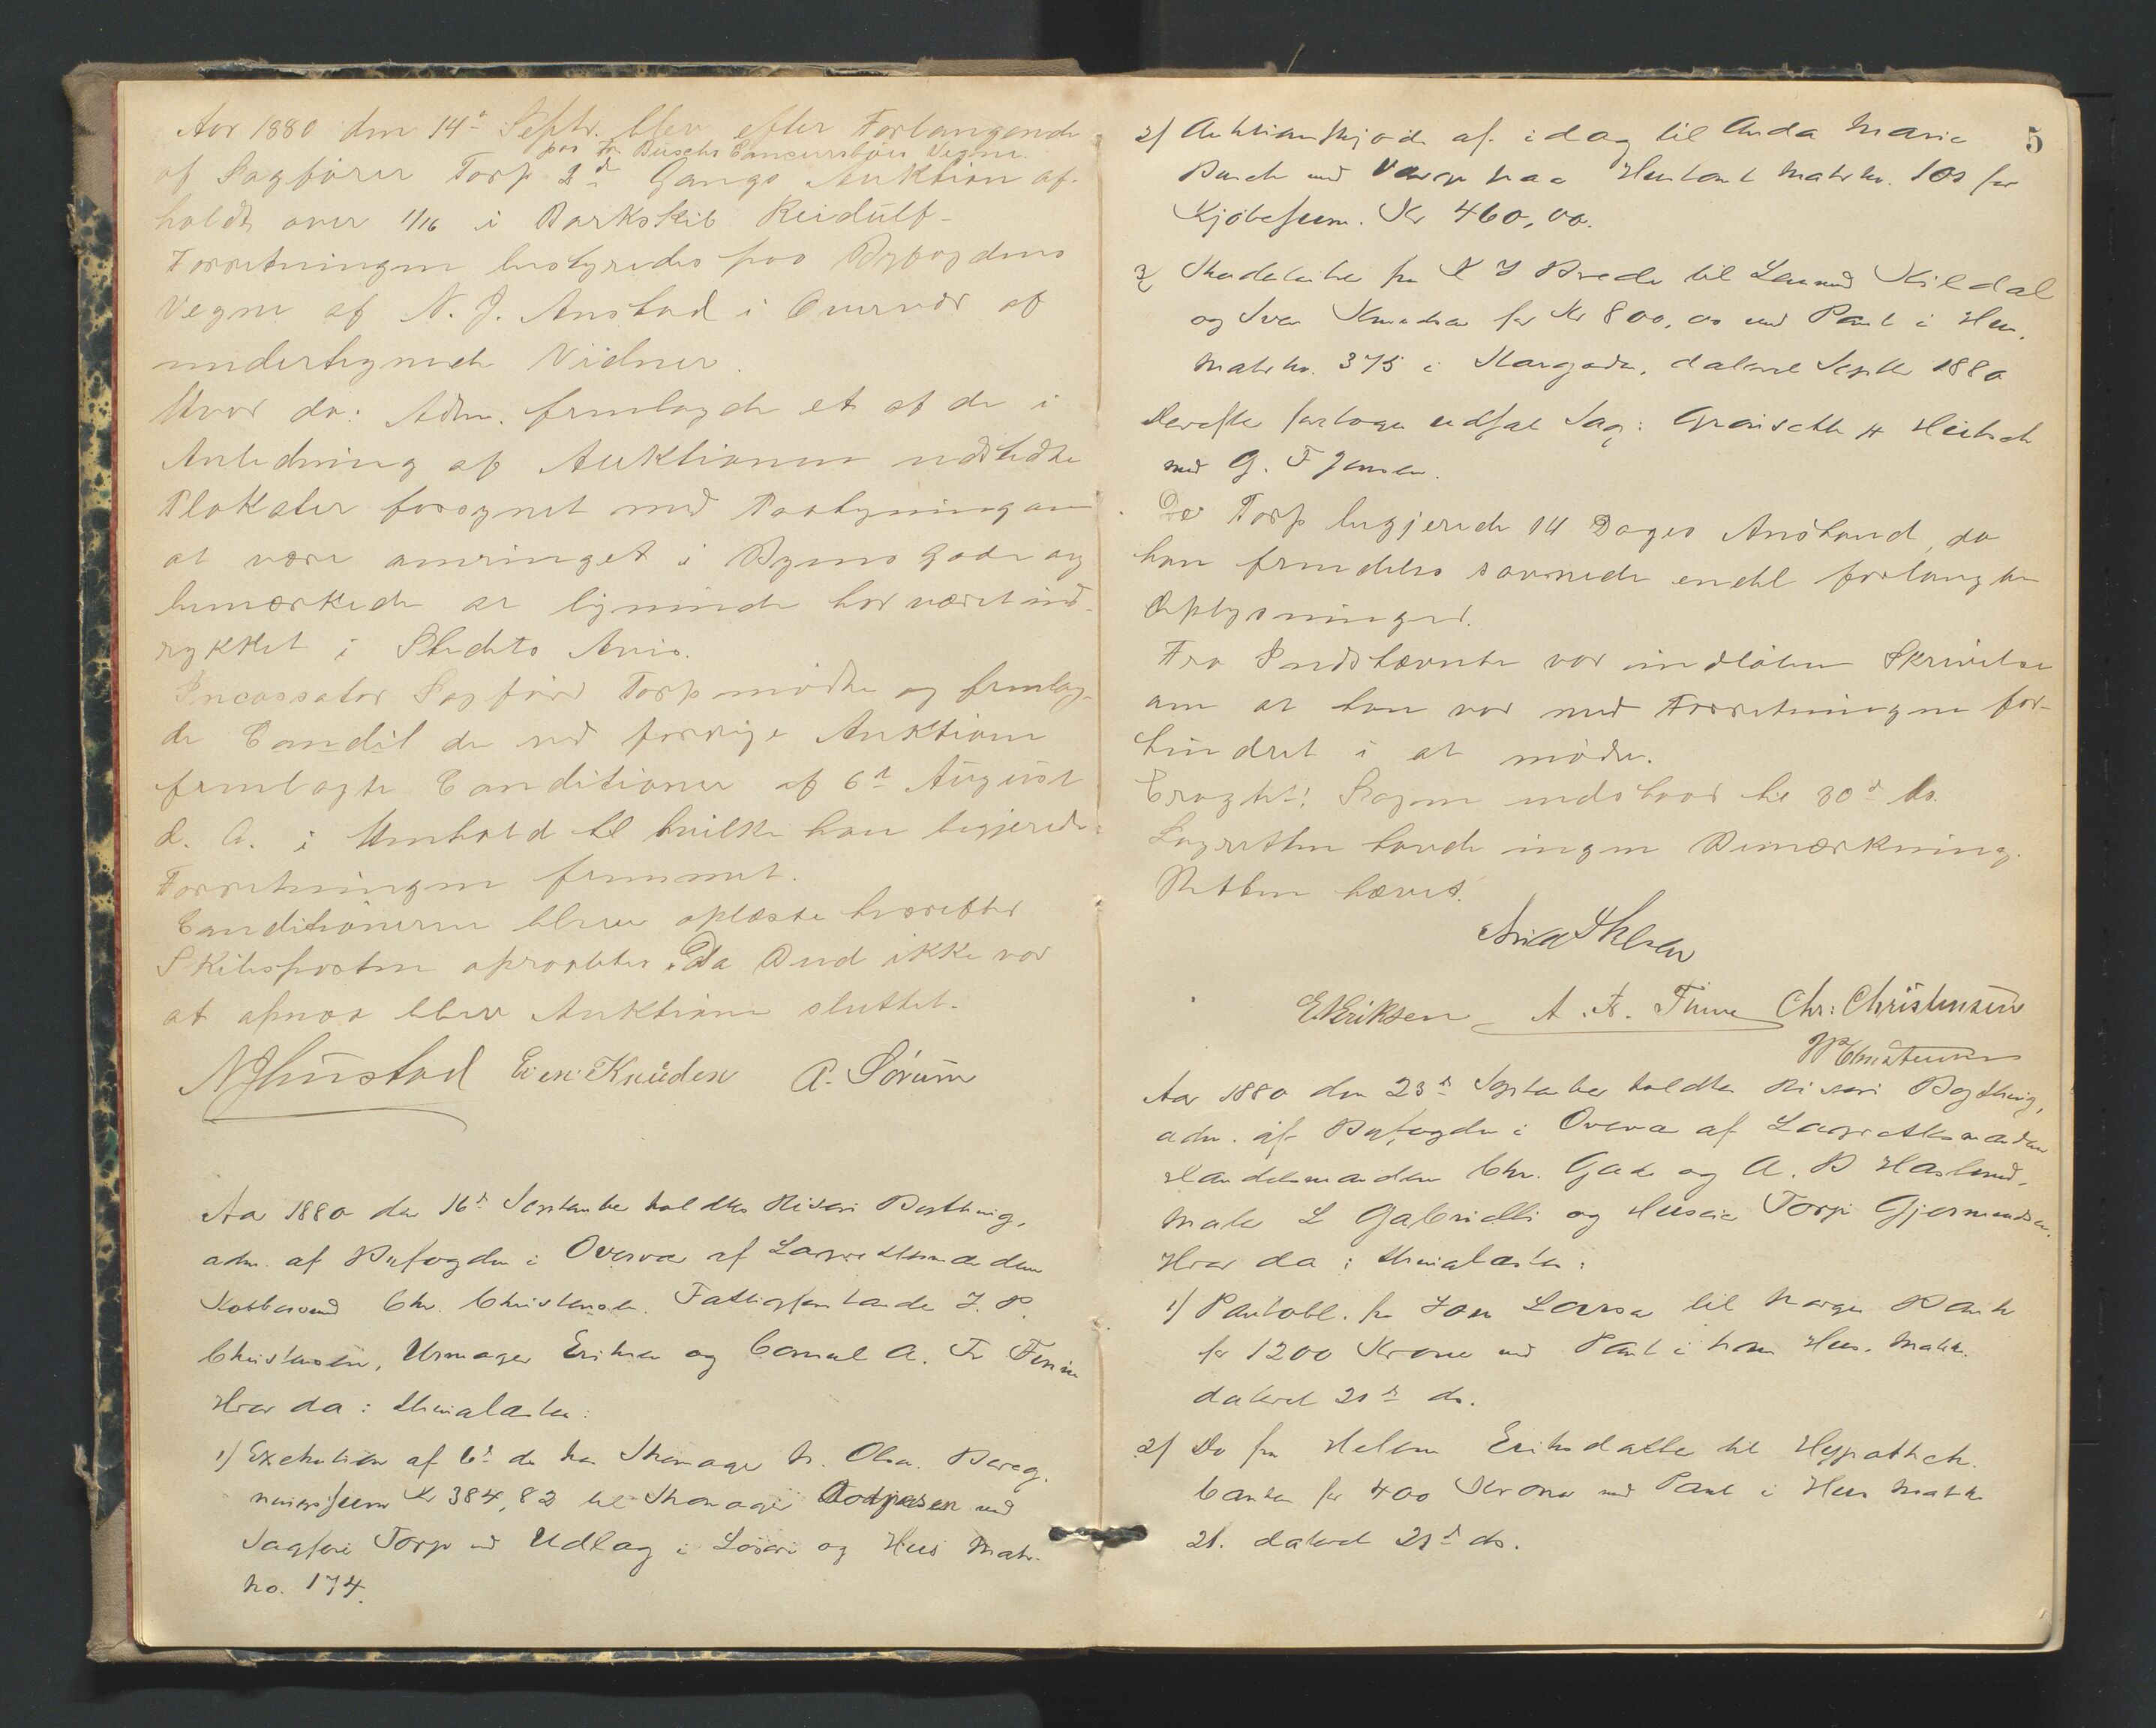 Aar 1880 den 14d Septbr. blev efter Forlangende
paa Fru Buschs Concursboes Vegne
af Sagfører Torp 2d Gangs Auktion af-
holdt over 1/16 i Barkskib Reidulf-
Forretningen bestyredes paa Byfogdens
Vegne af N. J. Anstad i Overvær af
undertegnede Vidner.
Hvor da: Adm. fremlagde et af de i
Anledning af Auktionen udstedte
Plakater forsynet med Paategning om
at være omringet i Byens Gader og
bemærkede at lignende har været ind-
rykket i Stedets Avis.
Incassator Sagfører Torp mødte og fremlag-
de Condit de ved forrige Auktion
fremlagte Conditioner af 6d August
d. A. i Henhold til hvilke han begjerede
Forretningen fremmet.
Conditionerne bleve oplæste hvorefter
Skibsparten opraabtes. Da Bud ikke var
at opnaa blev Auktionen sluttet.
NJAnstad Even Knudsen A. Sørum
Aar 1880 den 16d September holdtes Risør Bything,
adm. af Byfogden i Overvær af Laugrettesmændene
Kobbersmed Chr. Christensen. Fattigforstander J. P.
Christensen, Urmager Eriksen og Consul A. Fr Finne
Hvor da: thinglæstes:
1) Exekution af 6d ds hos Skomager N. Olsen. Bereg-
ningssum Kr 384,82 til Skomager ved
Sagfører Torp ved Udlæg i Løsøre og Hus Matr.
No. 174.
5
2) Auktionsskjøde af idag til Anda Marie
Busch med Værge paa Hustomt Matr No. 100 for
Kjøbesum. Kr 460,00.
3) Skadesløsbr fra N J Brede til Laurits Kildal
og Iver Knudsen for Kr 800,00 med Pant i Hus.
Matr No. 375 i dateret Septbr 1880
Derefter foretoges udsat Sag: H Heitsch
mod G. F Jensen.
Torp begjerede 14 Dages Anstand, da
han fremdeles savnede endel forlangte
Oplysninger.
Fra Indstævnte var indløben Skrivelse
om at han var ved Forretninger for-
hindret i at møde.
Eragtet: Sagen udstaar til 30d ds.
Lagretten havde ingen Bemærkning.
Retten hævet.
E Eriksen A. Fr. Finne Chr: Christensen
JPChristensen
Aar 1880 den 23d September holdtes Risør Bything,
adm. af Byfogden i Overvær af Laugrettesmændene
Handelsmændene Chr. Gade og A. B Haslund,
Maler L Gabrielli og Huseier Torp Gjermundsen.
Hvor da: thinglæstes:
1) Pantobl. fra Jon Larsen til Norges Bank
for 1200 Kroner med Pant i hans Hus. Matr.
dateret 21d ds.
2) Do fra Helene Eriksdatter til Hypothek-
banken for 400 Kroner med Pant i Hus Matr
21. dateret 21d ds.